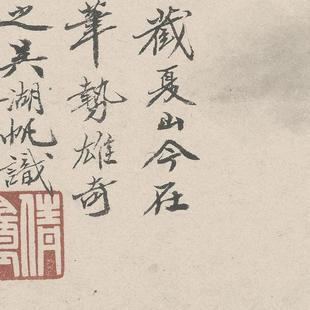 藏夏山今在
筆勢雄奇
之吴湖帆識
倩